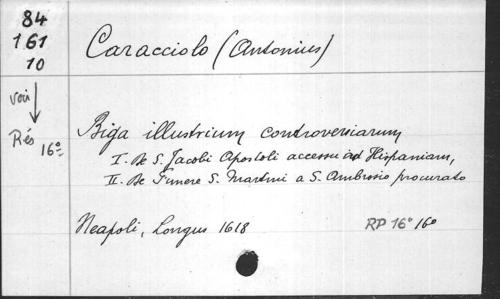 84
161
10
voir
Rés 16º
Caracciolo (Antonius)
Biga illustrium controversiarum
I. De S. Jacobi Apostoli accessu ad Hispaniam,
II. De Funere S. Martini a S. Ambrosio procurato
Neapoli, Longus 1618
RP 16º 16º